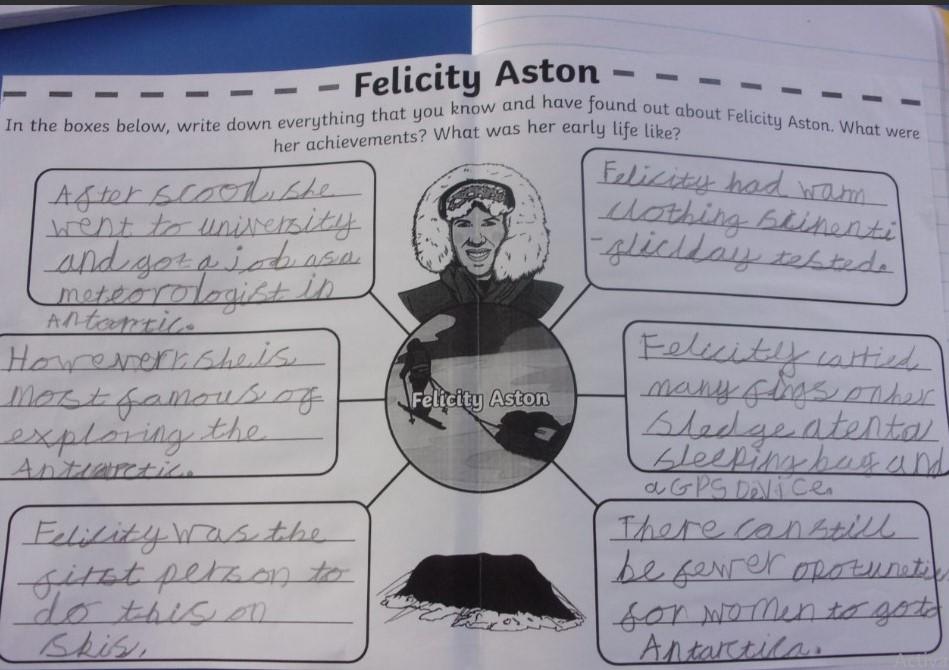 Felicity Aston
In the boxes below, write down everything that you know and have found out about Felicity Aston. What were
her achievements? What was her early life like?
After scool, she
went to university
and got a job as a
meteorologist in
Antartic.
However, she is
most famous of
exploring the
Antarctic.
Felicity was the
first person to
do this on
skis.
Felicity Aston
Felicity had wam
clothing skinenti
-ficlday tested.
Felicitly carried
many fings on her
sledge a tent a
sleeping bag and
a GPS Device.
There can still
be fewer opotuneti
for women to go to
Antarctica.